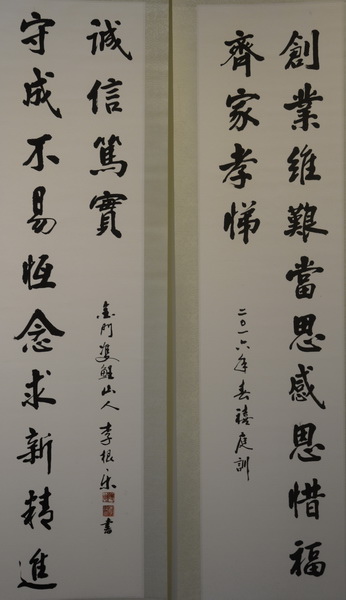 創業維艱當思感恩惜福
齊家孝悌
二〇一六年春禧庭訓
守成不易恆念求新精進
誠信篤實
金門雙鯉山人李根樂書